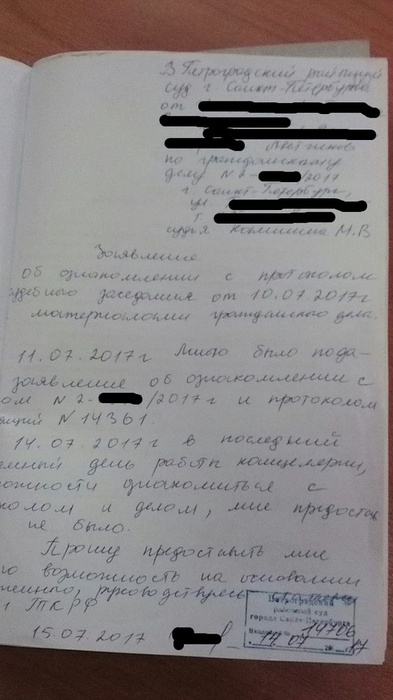 В Петроградский районный
суд г Санкт-Петербурга
от
по гражданскому
делу N 2- /2017
г. Санкт-Петербург,
ул
г.
судья Калинина М.В
Заявление
об ознакомлении с протоколом
судебного заседания от 10.07.2017г
материалами гражданского дела.
11.07.2017г Мною было пода-
заявление об ознакомлении с
ом N 2- /2017г и протоколом
ящий N 14361.
14.07.2017г в последний
день работы канцелярии,
ожности ознакомиться с
колом и делом, мне предостав
не было.
Прошу предоставить мне
ю возможность на основании
женного, руководствуясь
ГПК РФ
15.07.2017
Петроградский
районный суд
города Санкт-Петербурга
14706
14 07 17